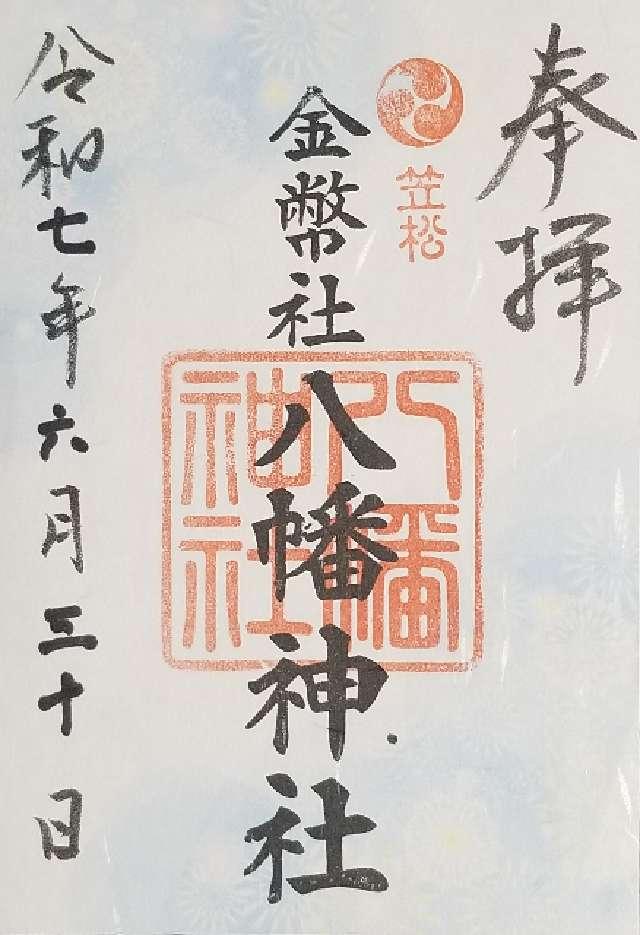 奉拝
笠松
金幣社八幡神社
八幡
神社
令和七年六月三十日